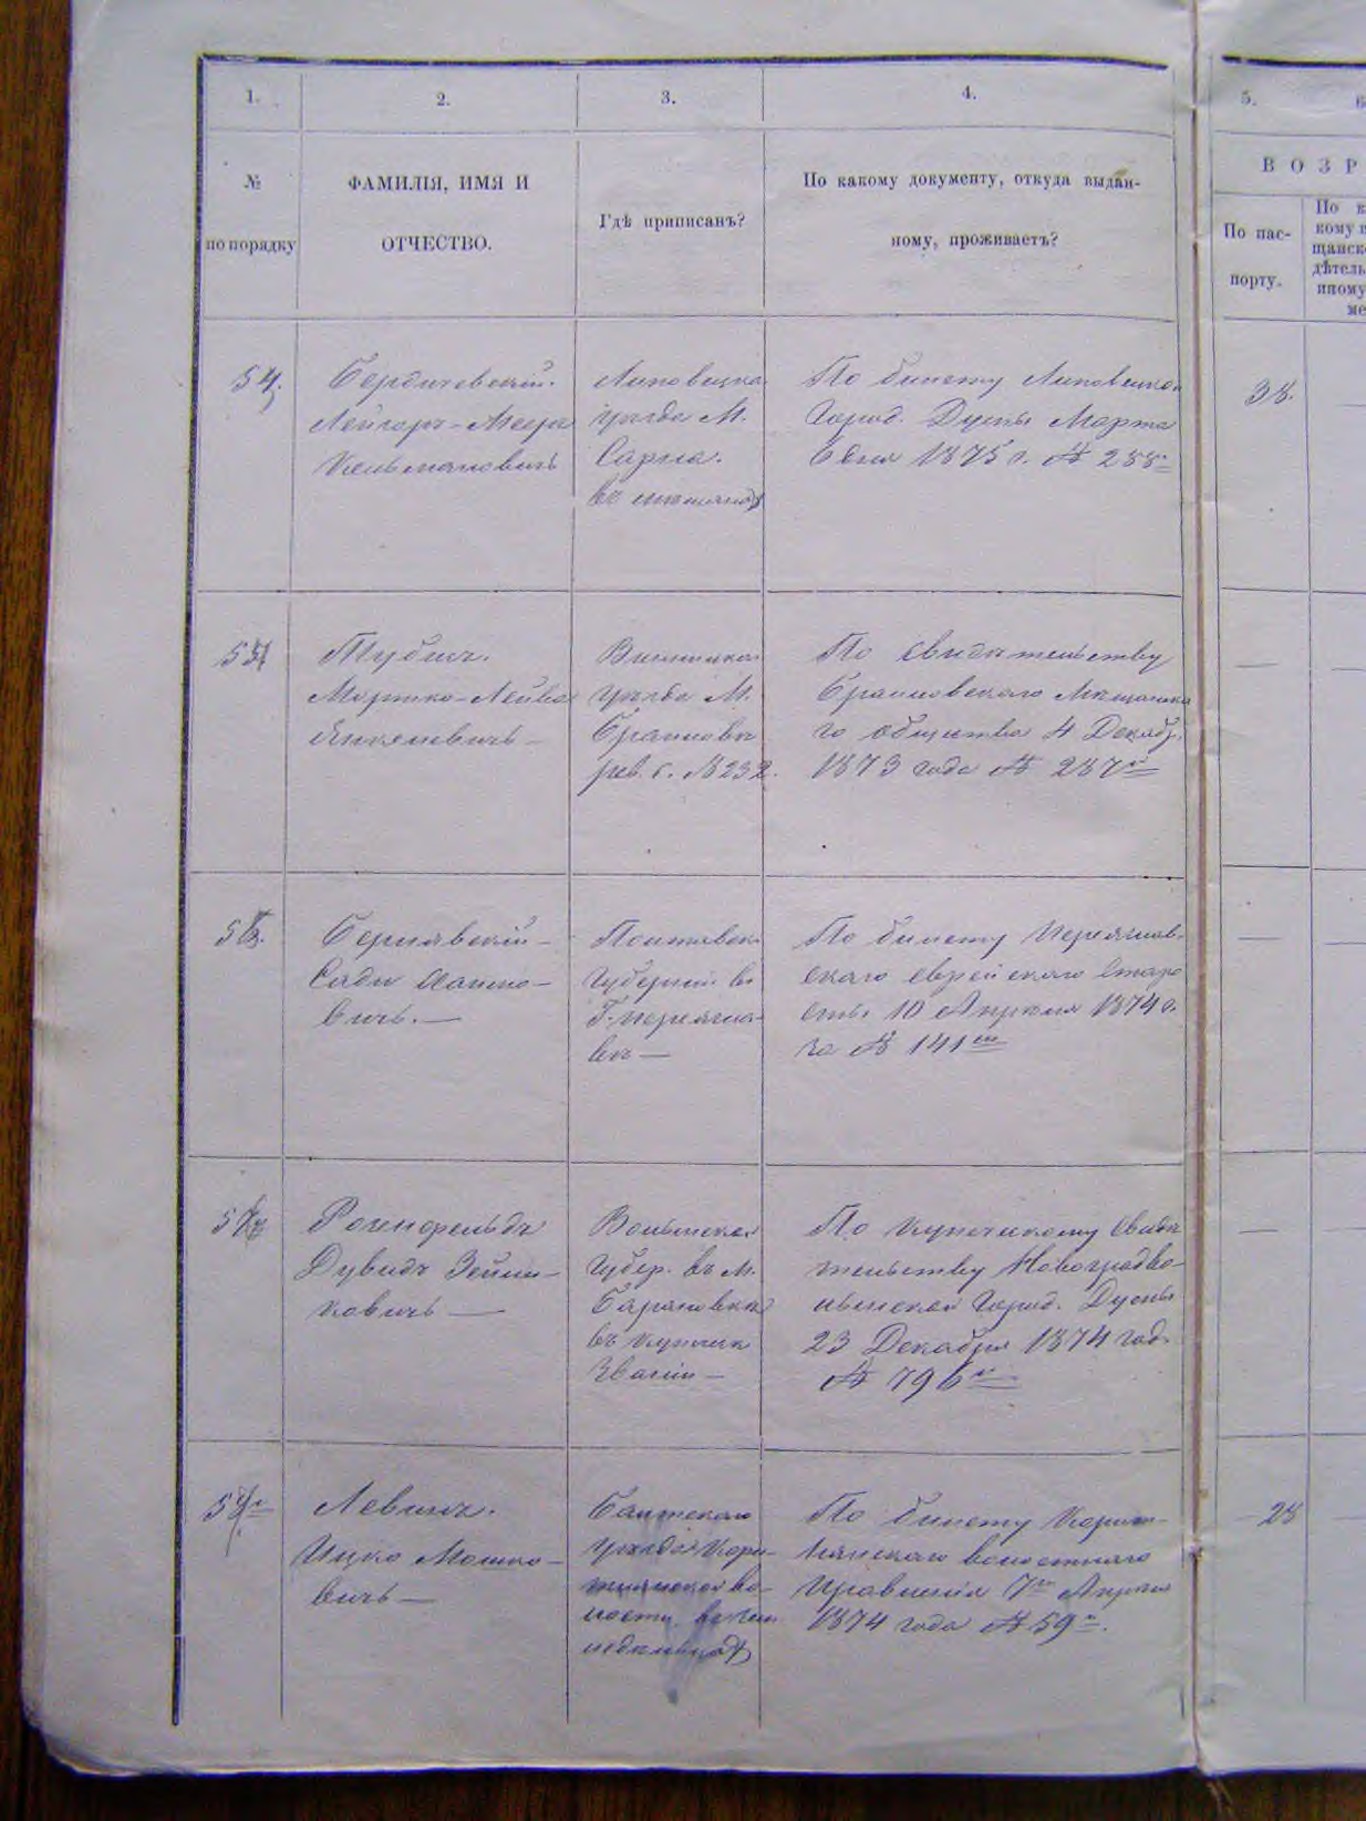 1.
2.
3.
4.
5.
№
по порядку
ФАМИЛІЯ, ИМЯ И
ОТЧЕСТВО.
Гдѣ приписанъ?
По какому документу, откуда выдан-
ному, проживаетъ?
ВОЗР
По пас-
порту.
По к
кому
щанск
дѣтель
иному
ме
54.
Бердичевскій.
Лейзоръ-Мееръ
Кельмановичъ
Липовецка
уѣзда М.
Сарна.
въ
По билету Липовецкой
Город. Думы Марта
6 дня 1875 г. № 288
38.
55
Тубисъ.
Мортко-Лейба
Янкелевичъ —
Винницка
уѣзда М.
Браиловъ
рев. с. № 232.
По свидѣтельству
Браиловскаго Мѣщанска
го общества 4 Декабр.
1873 года № 287
56.
Бернявскій —
Сади Хаимо-
вичъ. —
Полтавск.
Губерніи въ
Г. Переясла-
вѣ —
По билету Переяслав-
скаго еврейскаго старо
сты 10 Апрѣля 1874 г.
за № 141
57
Розенфельдъ
Дувидъ Зейли-
ковичъ —
Волынской
Губер. въ М.
Барановкѣ
въ купеческ
званіи —
По купеческому свидѣ
тельству Новоградво-
лынской Город. Думы
23 Декабря 1874 год.
№ 796
58
Левитъ.
Ицко Мошко-
вичъ —
Балтскаго
уѣзда
во-
лости въ зем
ледѣльцахъ
По билету
волостнаго
Правленія 7 Апрѣля
1874 года № 59.
28